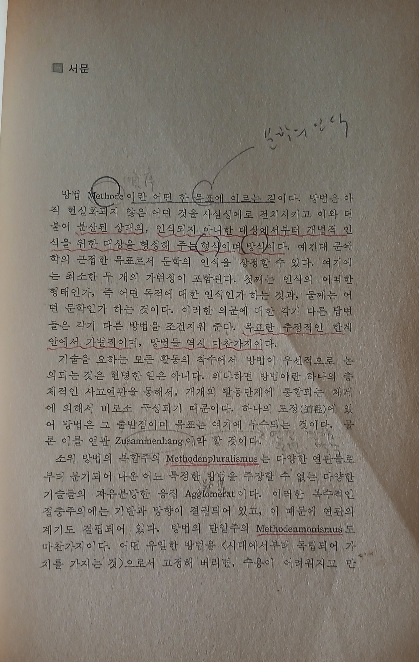 서문
문학의 인식
방법 Methode이란 어떤 한 목표에 이르는 길이다. 방법은 아
직 현실화되지 않은 어떤 것을 사실상에로 전치시키고 이와 더
불어 분산된 상태의, 인식되지 아니한 대상에서부터 개별적 인
식을 위한 대상을 형성해 주는 형식이며 방식이다. 예컨대 문예
학의 근접한 목표로서 문학의 인식을 상정할 수 있다. 여기에
는 최소한 두 개의 가변성이 포함된다. 첫째는 인식의 어떠한
형태인가, 즉 어떤 목적에 대한 인식인가 하는 것과, 둘째는 어
떤 문학인가 하는 것이다. 이러한 의문에 대한 각기 다른 답변
들은 각기 다른 방법을 조건지워 준다. 목표란 추정적인 한계
안에서 가변적이며, 방법들 역시 마찬가지이다.
기술을 요하는 모든 활동의 착수에서 방법이 우선적으로 논
의되는 것은 현명한 일은 아니다. 왜냐하면 방법이란 하나의 총
체적인 사고연관을 통해서, 개개의 활동단계에 종합되는 체계
에 의해서 비로소 구성되기 때문이다. 하나의 도정(道程)에 있
어 방법은 그 출발점이며 목표는 여기에 누수되는 것이다. 물
론 이를 연관 Zusammenhang이라 할 것이다.
소위 방법의 복합주의 Methodenpluralismus는 다양한 연관들로
부터 분기되어 나온 어느 특정한 방법을 주장할 수 없는 다양한
기술들의 자유분방한 응집 Agglomerat이다. 이러한 복수적인
집중주의에는 간판과 방향이 결핍되어 있고, 이 때문에 연관의
제기도 결핍되어 있다. 방법의 단일주의 Methodenmonismus도
마찬가지이다. 어떤 유일한 방법을 (시대에서부터 독립되어 가
치를 가지는 것)으로서 고정해 버리면, 수용이 어려워지고 만